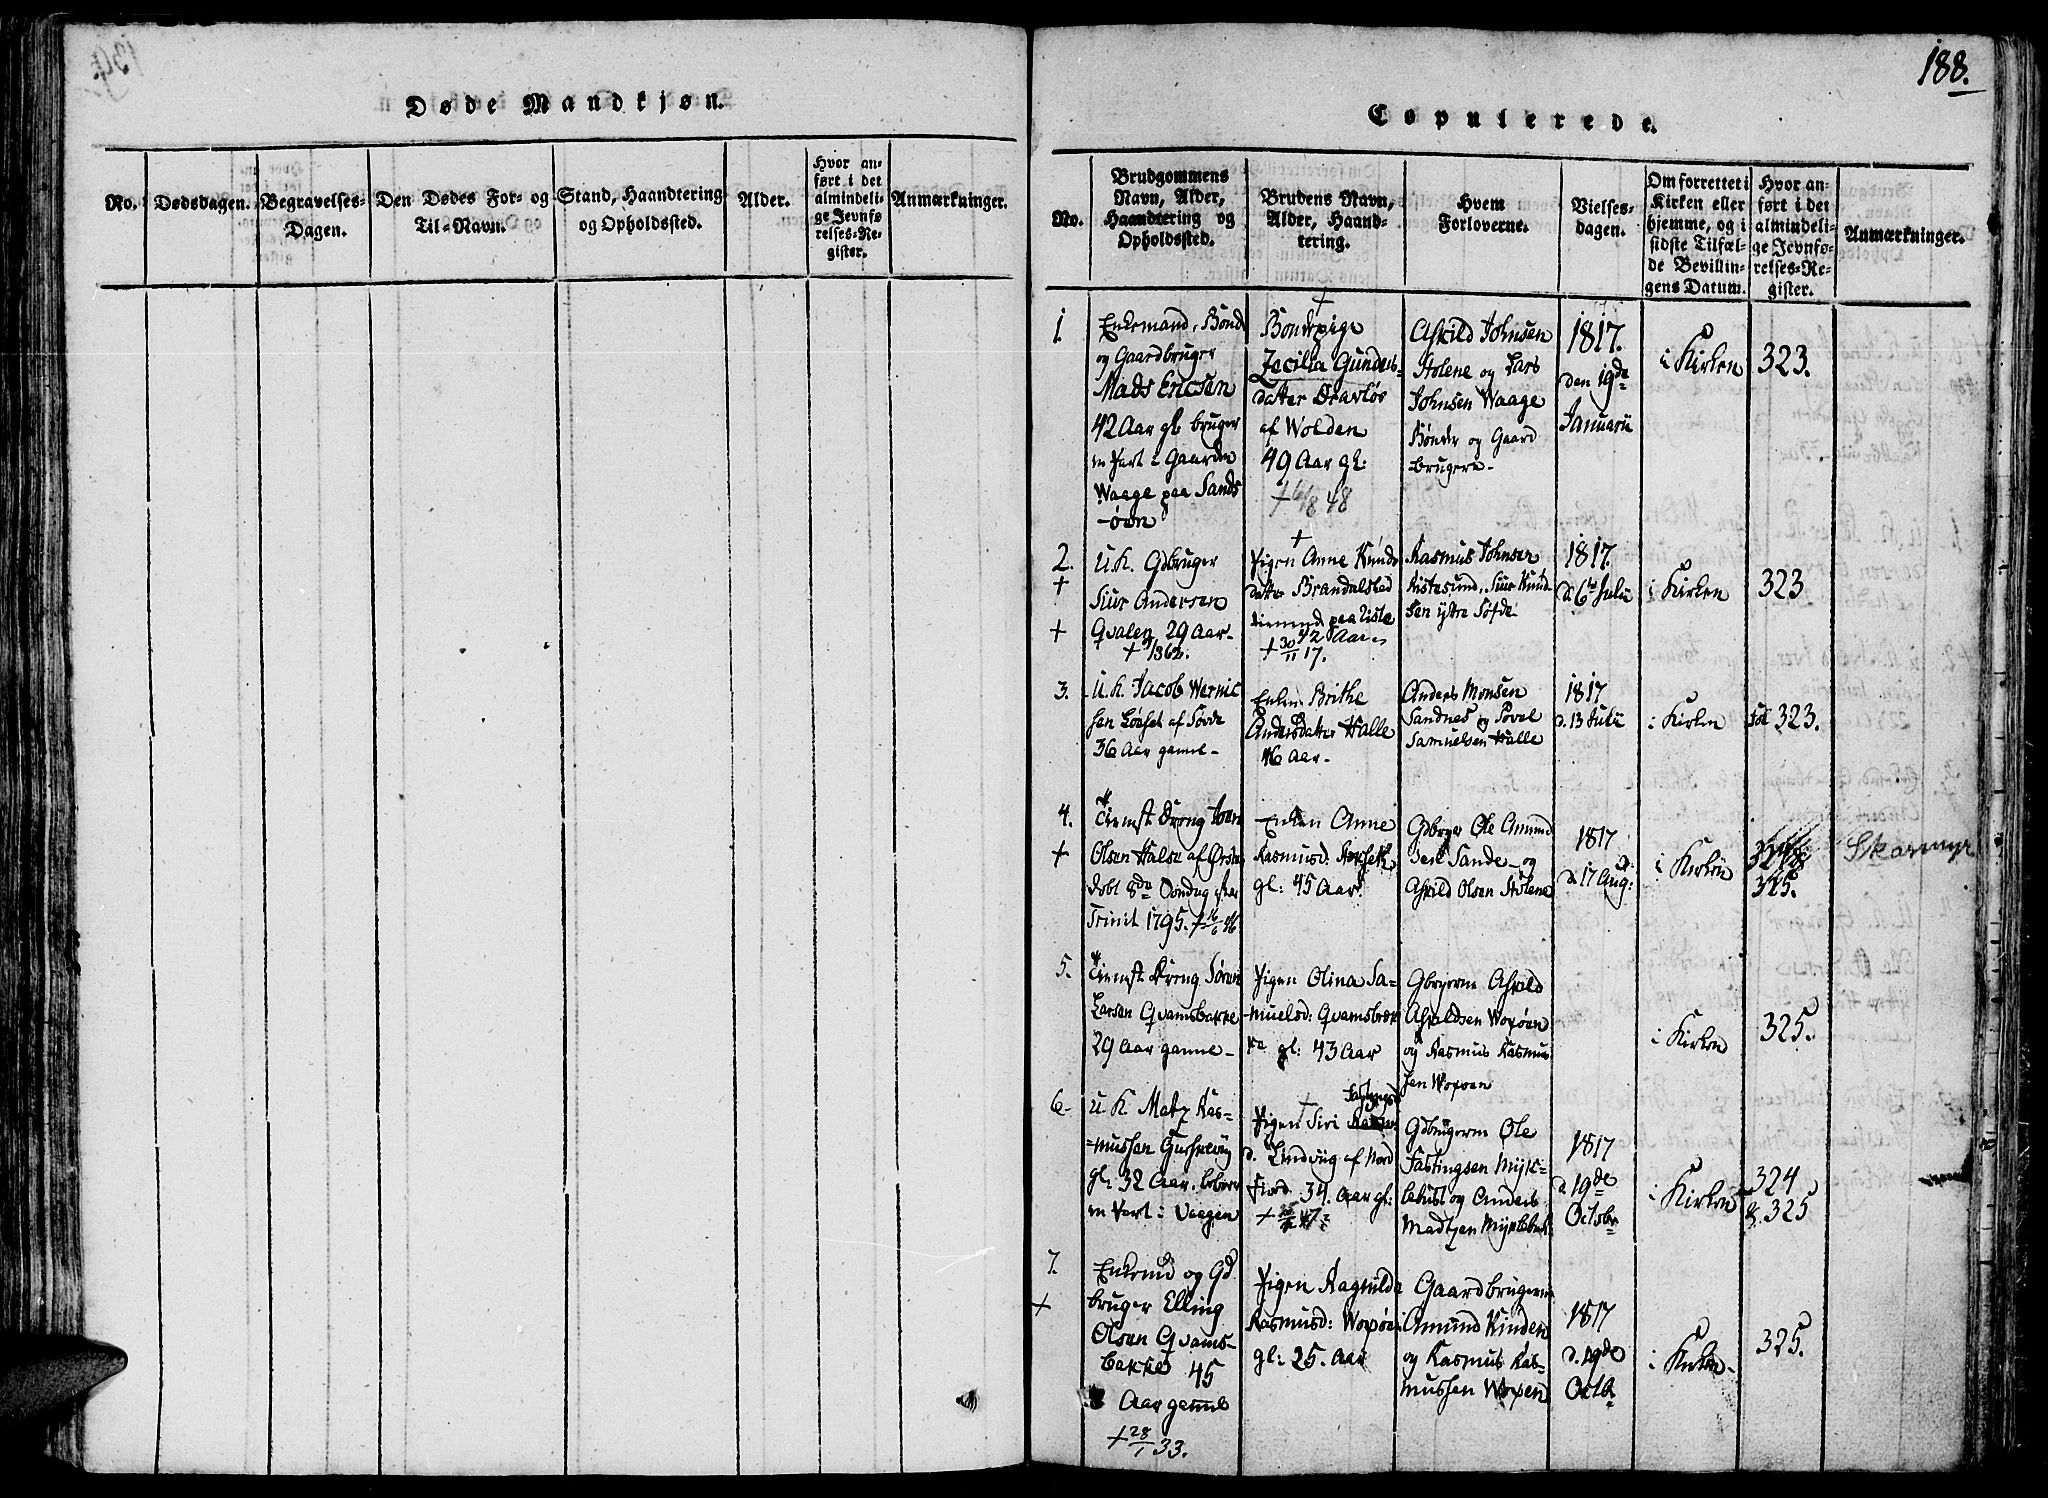 Døde Mandkjøn.
No.
Dødsdagen.
Begravelses-
Dagen.
Den Dødes For- og
Til-Navn.
Stand, Haandtering
og Opholdssted.
Alder.
Hvor an-
ført i det
almindeli-
ge Jevnfø-
relses-Re-
gister.
Anmærkninger.
188.
Copulerede.
No.
Brudgommens
Navn, Alder,
Haandtering og
Opholdssted.
Brudens Navn,
Alder, Haand-
tering.
Hvem
Forloverne.
Vielses-
dagen.
Om forrettet i
Kirken eller
hjemme, og i
sidste Tilfæl-
de Bevillin-
gens Datum.
Hvor an-
ført i det
almindeli-
ge Jevnfø-
relses-Re-
gister.
Anmærkninger.
1.
Enkemand, Bonde
og Gaardbruger
Mads Ericsen
42 Aar gl. bruger
Part i Gaarden
Waage paa Sands
-øen
+
Bondepige
Zecilia Gunders-
datter
af Wolden
49 Aar gl:
Askild Johnsen
Stolene og Lars
Johnsen Waage
Bønder og Gaard
brugere-
1817.
den 19de
Januarii
i Kirken
323.
2.
+
+
U.K. Gdbruger
Siur Andersen
Qvalen 29 Aar-
+
Pigen Anne Knuds
datter Brandalstad
42 Aar
+ 30/11 17.
Rasmus Johnsen
Ristesund, Siur Knud
sen ytre Søfde
1817.
d: 6te Julii
i Kirken
323
3.
U.K. Jacob Wernic
sen Løeset af Søvde
36 Aar gamle-
Enken Brithe
Andersdatter Halle
46 Aar-
Anders Monsen
Sandnes og Povel
Samuelsen Halle
1817
d. 13 Julii
i Kirken
Fol 323.
4.
+
Tienst Dreng Iver
Olsen Halse af Ørsten
døbt 8de Søndag efter
Trinit 1795. + 16/6
Enken Anne
Rasmusd:
gl: 45 Aar
Gdbrger Ole Amund
sen Sande- og
Askild Olsen Stolene
1817
d. 17 Aug:
i Kirken
325.
Skarmyr
5.
Tienst Dreng Søren
Larsen Qvamsbakke
29 Aar gamle-
Pigen Olina Sa-
muelsd: Qvamsbak
ke gl: 43 Aar
Gbrgerne Askild
Askildsen Woxøen
og Rasmus Rasmus
sen Woxøen
i Kirken
325.
6-
U K Matz Ras-
=mussen
gl: 32 Aar. beboer
Part i Vaagen
+
Fastings
Pigen Siri
d. Lindviig af Nord
fiord 34. Aar gl:
Gdbrugerne Ole
Fastingsen Mykle-
bust og Anders
Madtzen Myklebust
1817
d 19de
Octobr
i Kirken
324
& 325
7.
+
Enkemd og Gd
bruger Elling
Olsen Qvams-
bakke 45
Aar gamle
+ 28/1 33.
Pigen Ragnilde
Rasmusd: Woxøen
gl: 25. Aar
Gaardbrugerne
Amund Kinden
og Rasmus Ras-
mussen Woxøen
1817
d. 19de
Octb
i Kirken-
325.